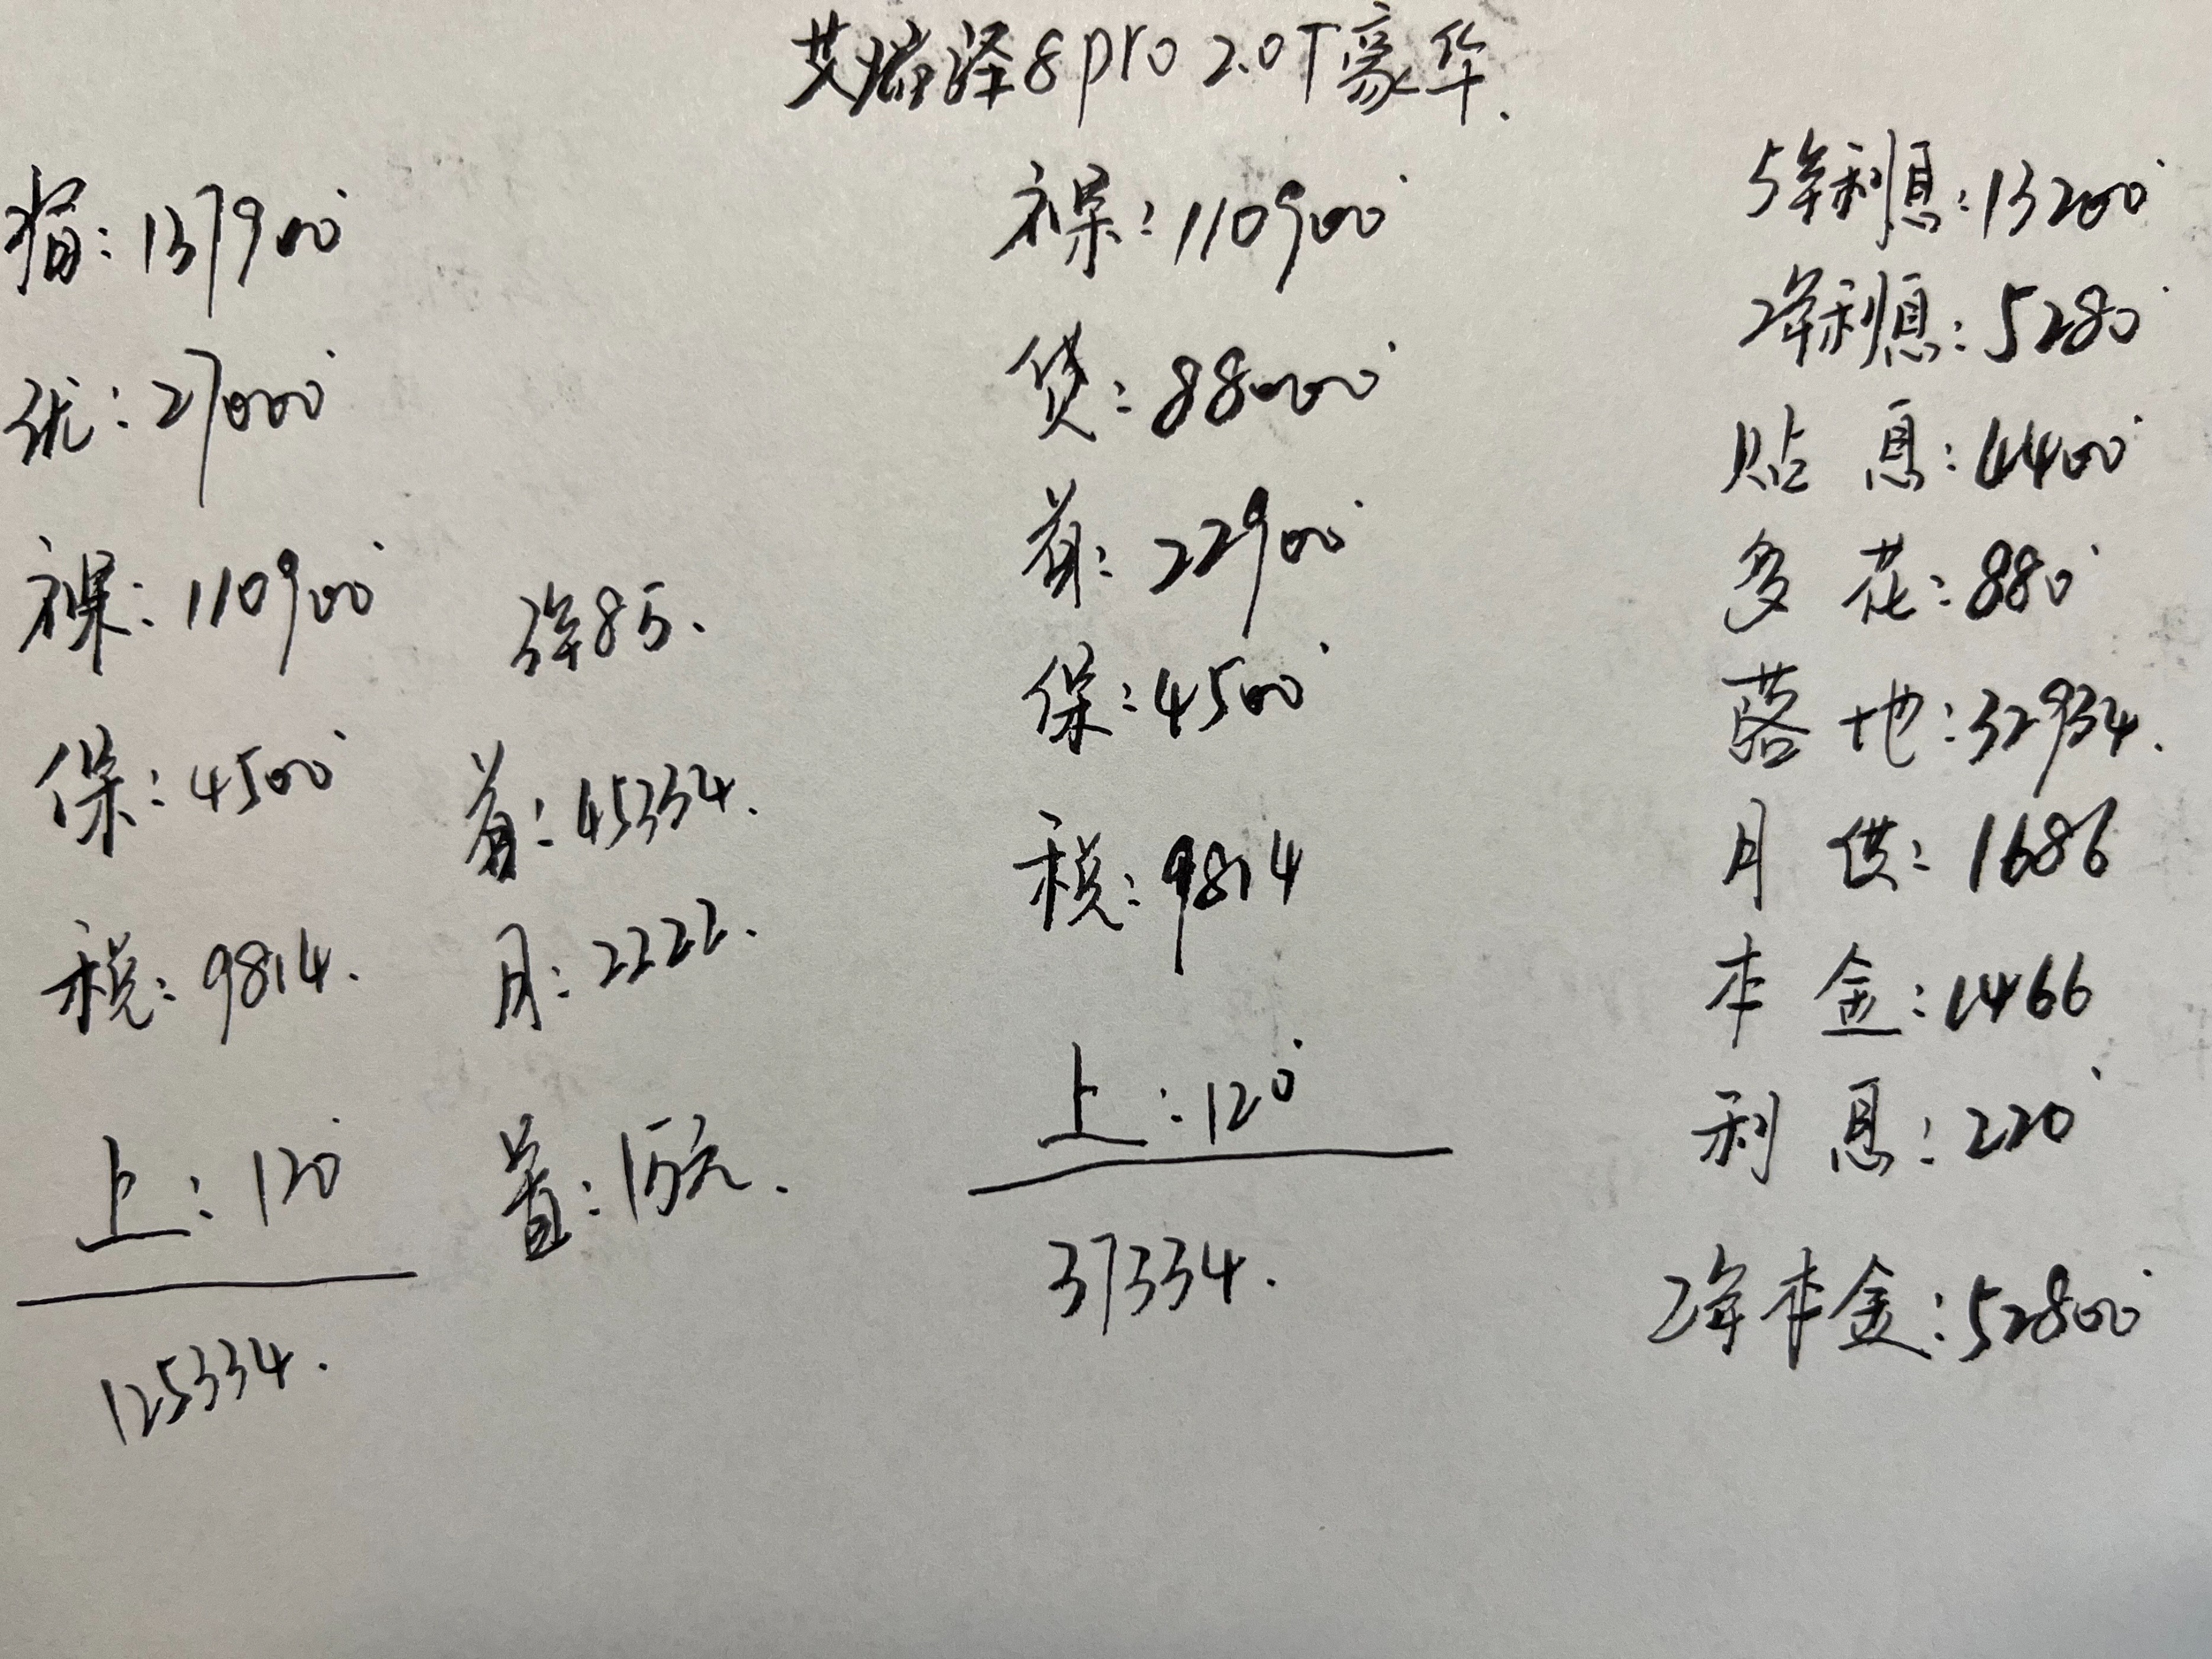 艾瑞泽8pro 2.0T豪华.
指: 137900
优: 27000
裸: 110900
保: 4500
税: 9814.
上: 120
125334.
3年8万.
首: 45334.
月: 2222.
置: 1万元.
裸: 110900
贷: 88000
首: 22900
保: 4500
税: 9814
上: 120
37334.
5年利息: 13200
2年利息: 5280
贴息: 4400
多花: 880
落地: 32934.
月供: 1686
本金: 1466
利息: 220
2年本金: 52800